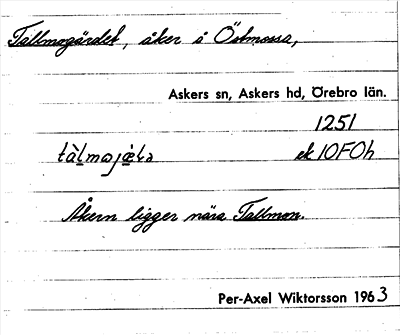 Tallmogärdet, åker å Östmossa,
Askers sn, Askers hd, Örebro län.
1251
ek 10F0h
Åkern ligger nära Tallmon.
Per-Axel Wiktorsson 1963